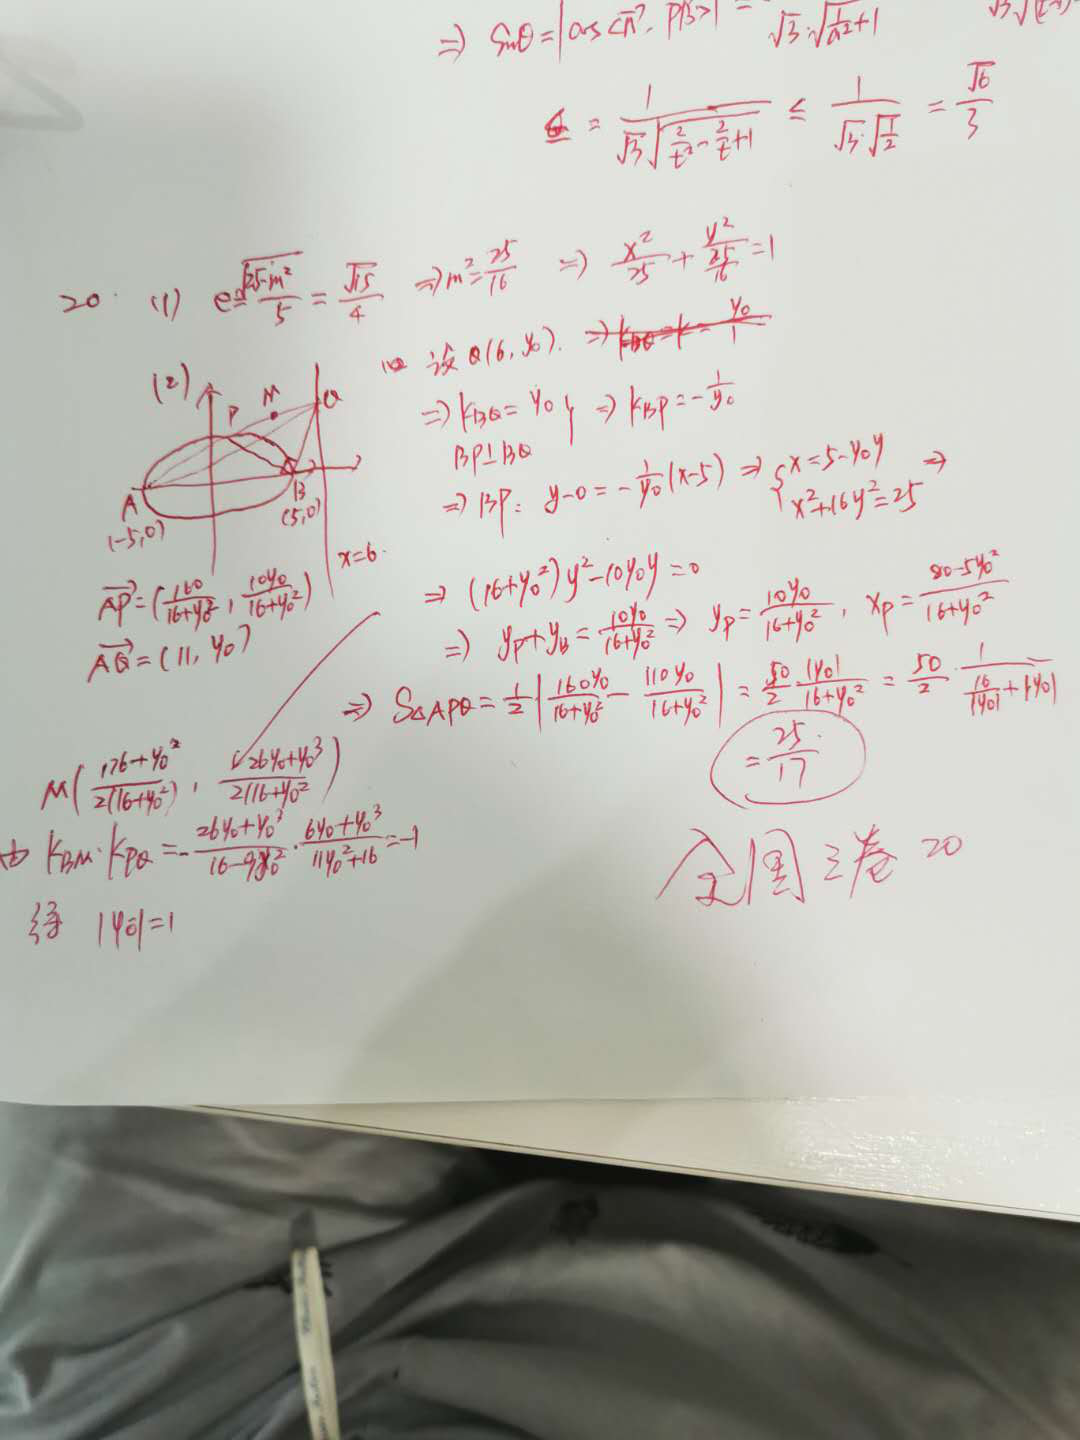 ⇒ Sinθ = |cos<n⃗, PB>| = √3·√(1/a²+1)
= 1/(√3√(2/t²-2/t+1)) ≤ 1/(√3·√(1/2)) = √6/3
20. (1) e = √(25-m²)/5 = √15/4 ⇒ m² = 25/16 ⇒ x²/25 + y²/(25/16) = 1
(2) 设 Q(6, y₀). ⇒ k_BQ = k = y₀/1
P M Q
⇒ k_BQ = y₀ } ⇒ k_BP = -1/y₀
BP⊥BQ
A (-5,0)
B (5,0)
x=6.
⇒ BP: y-0 = -1/y₀(x-5) ⇒ { x=5-y₀y
x²+16y²=25 ⇒
⇒ (16+y₀²)y²-10y₀y=0
AP⃗ = (160/(16+y₀²), 10y₀/(16+y₀²))
AQ⃗ = (11, y₀)
⇒ y_P+y_B = 10y₀/(16+y₀²) ⇒ y_P = 10y₀/(16+y₀²), x_P = (80-5y₀²)/(16+y₀²)
⇒ S△APQ = 1/2|160y₀/(16+y₀²) - 110y₀/(16+y₀²)| = 50/2·|y₀|/(16+y₀²) = 50/2·1/(16/|y₀|+|y₀|)
= 25/17
M(176+y₀²/2(16+y₀²), 26y₀+y₀³/2(16+y₀²)
由 k_BM·k_PQ = -(26y₀+y₀³)/(16-9y₀²)·(6y₀+y₀³)/(11y₀²+16) = -1
得 |y₀|=1
全国三卷 20